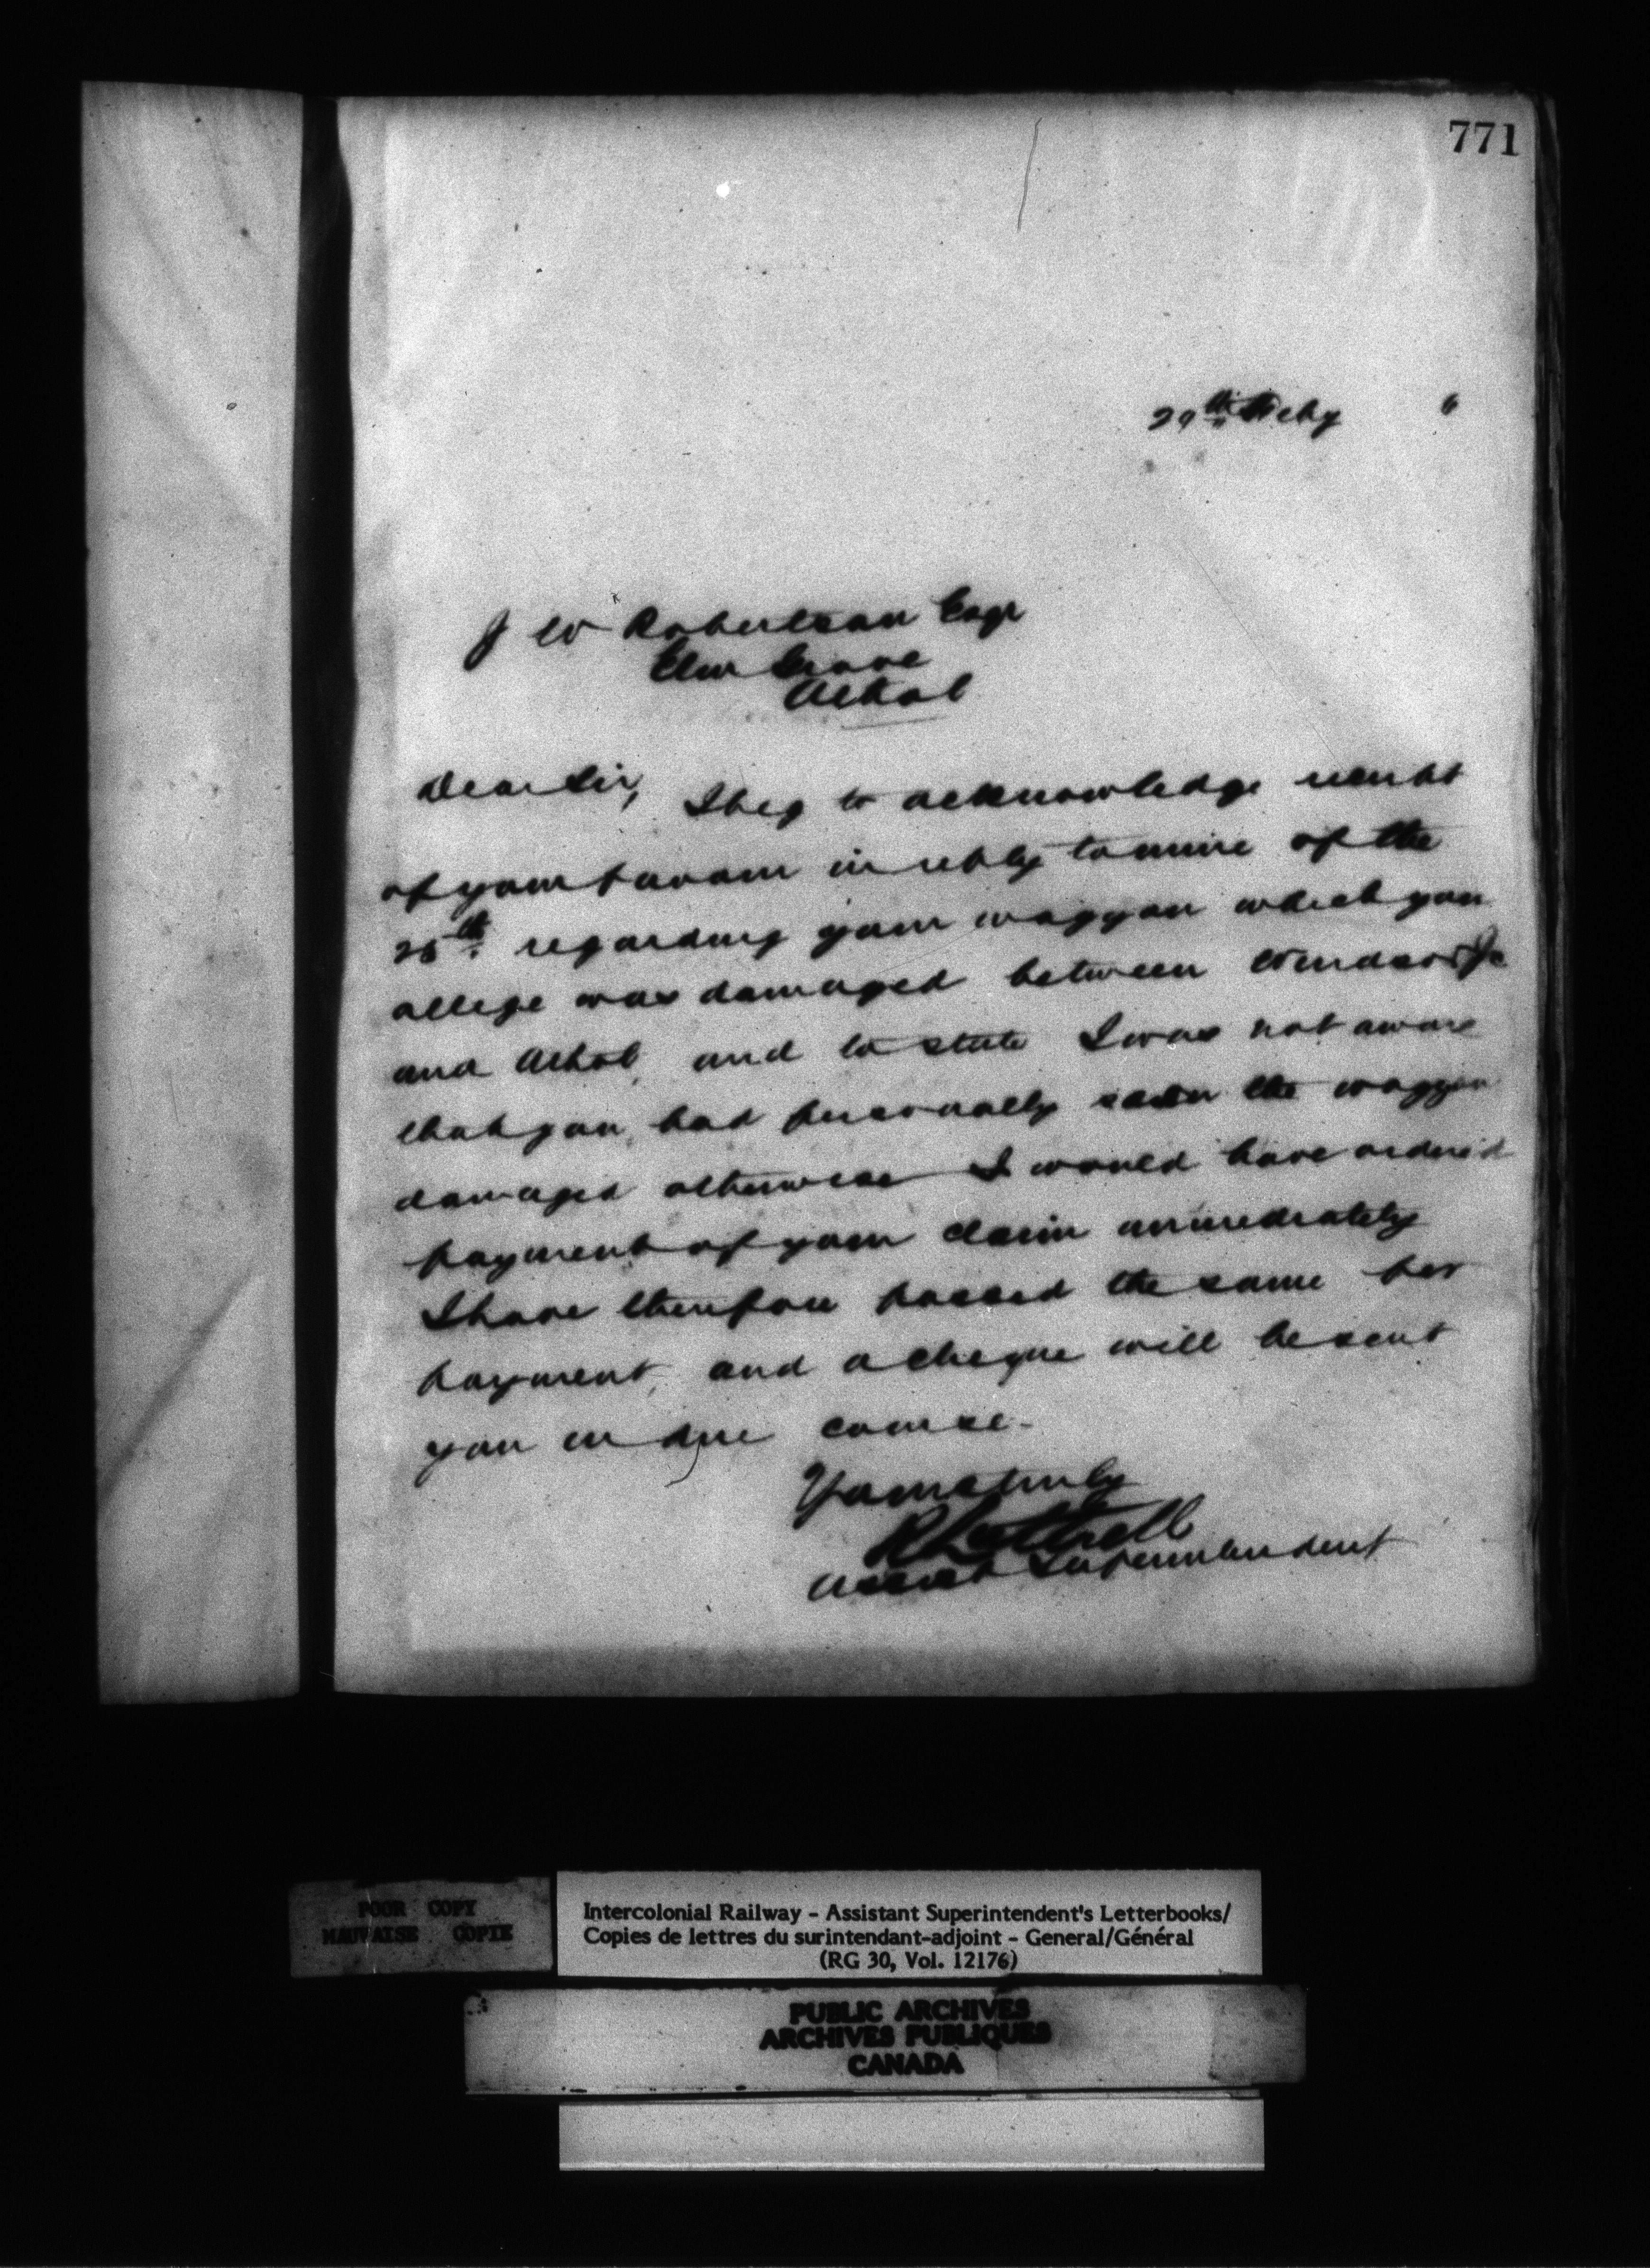 771
29th Feby 6
J W Robertson Esqr
Elm Grove
Athol
Dear Sir, I beg to acknowledge receipt
of your favour in reply to mine of the
28th. regarding your waggon which you
allege was damaged between Windsor Jc
and Athol, and to state I was not aware
that you had personally seen the waggon
damaged otherwise I would have ordered
payment of your claim immediately
I have therefore passed the same for
payment, and a cheque will be sent
you in due course.
Yours truly
R Luttrell
Assist Superintendent
POOR COPY
MAUVAISE COPIE
Intercolonial Railway - Assistant Superintendent's Letterbooks/
Copies de lettres du surintendant-adjoint - General/Général
(RG 30, Vol. 12176)
PUBLIC ARCHIVES
ARCHIVES PUBLIQUES
CANADA